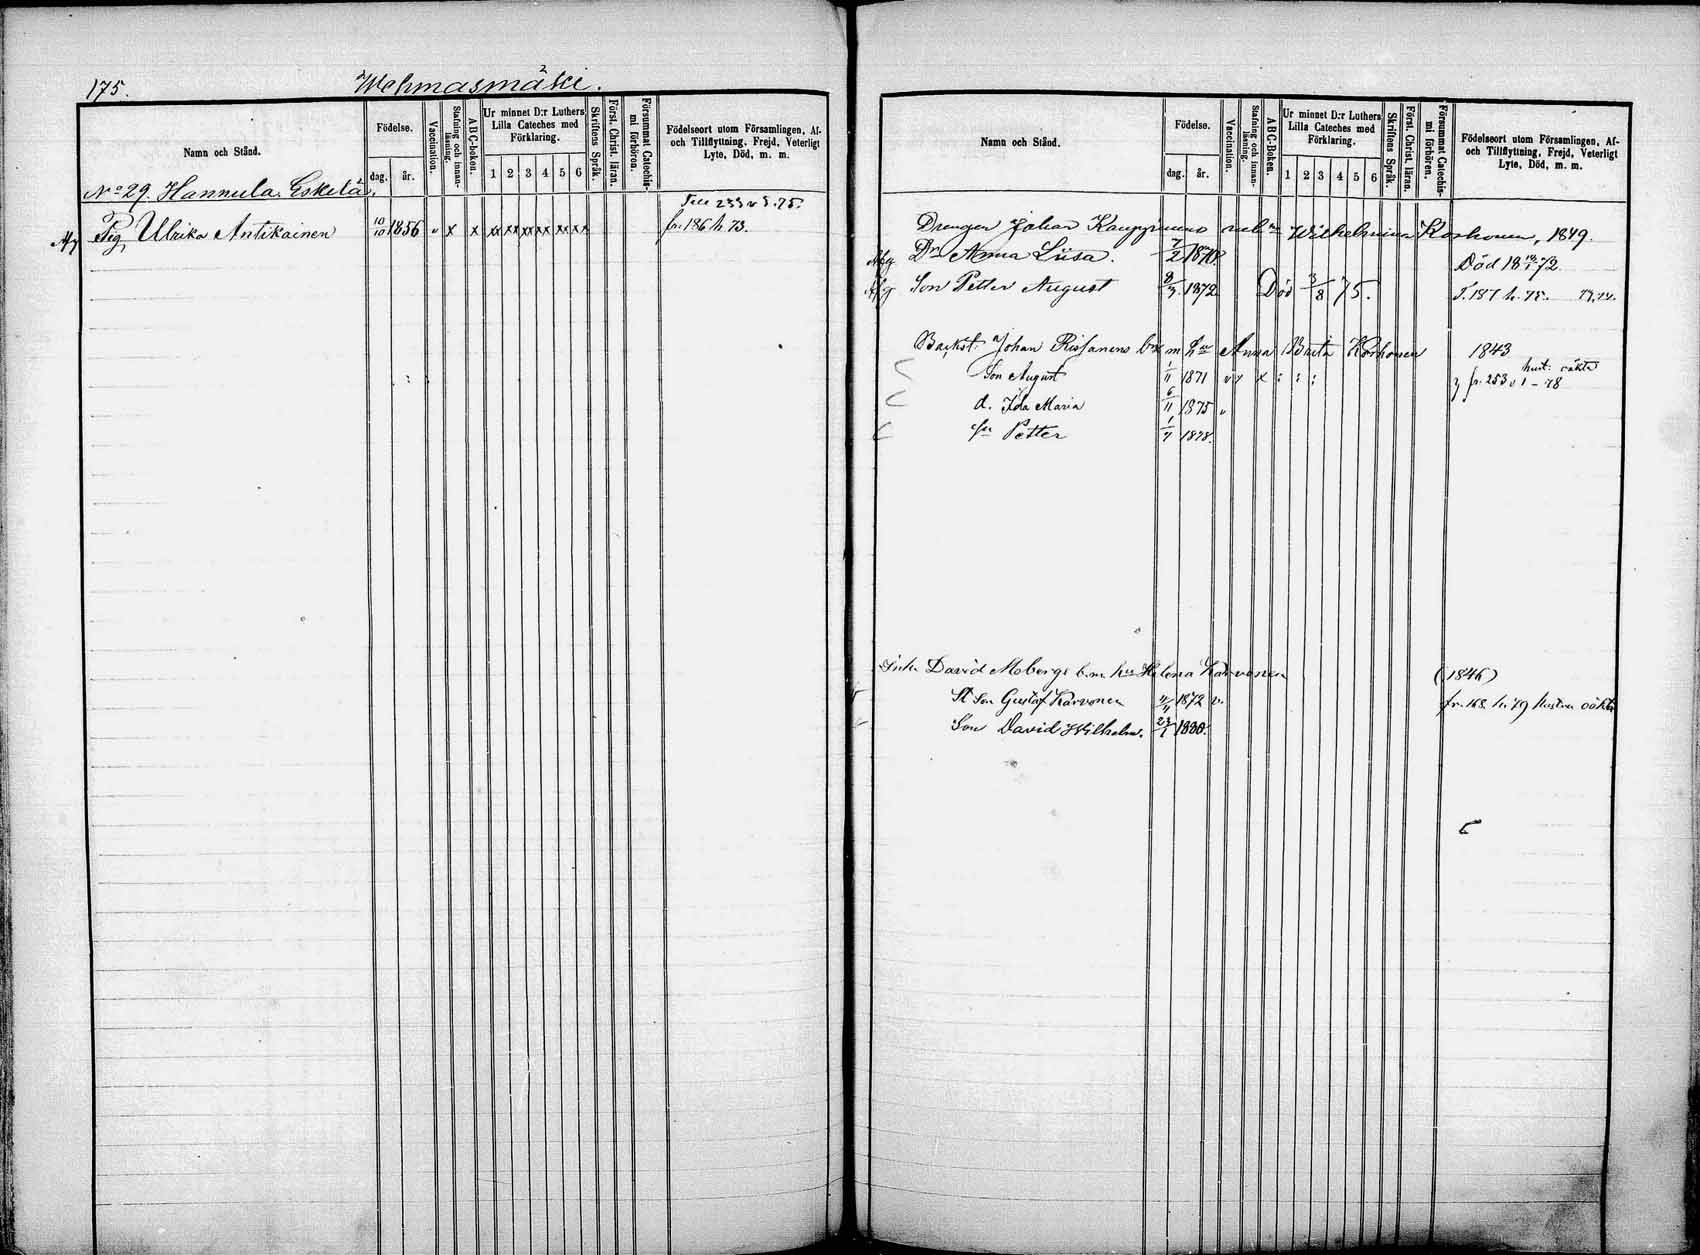 175.
Wehmasmäki.
Namn och Stånd.
Födelse.
dag.
år.
Vaccination.
Stafning och innanläsning.
ABC-boken.
Ur minnet D:r Luthers Lilla Cateches med Förklaring.
1 2 3 4 5 6
Skriftens Språk.
Först. Christ. läran.
Försummat Catechismi förhören.
Födelseort utom Församlingen, Af-
och Tillflyttning, Frejd, Veterligt
Lyte, Död, m. m.
No 29. Hannula Eskelä.
Till 233 v S. 75.
Afg Pig. Ulrika Antikainen 10/10 1856 v x x xx xx xx xx xx xx fr. 186 h 73.
Namn och Stånd.
Födelse.
dag.
år.
Vaccination.
Stafning och innanläsning.
ABC-Boken.
Ur minnet D:r Luthers Lilla Cateches med Förklaring.
1 2 3 4 5 6
Skriftens Språk.
Först. Christ. läran.
Försummat Catechismi förhören.
Födelseort utom Församlingen, Af-
och Tillflyttning, Frejd, Veterligt
Lyte, Död, m. m.
Drengen Johan Wilhelmina Korhonen, 1849.
Afg Dr Anna Liisa. 7/2 1870. Död 18 72
Afg Son Petter August 8/3 1872 Död 3/8 75. T. 187 h. 75.
Backst. Johan Rissanens b m Anna Brita Korhonen 1843
Son August 1/11 1871 v x x : : : fr. 253 v 1-78
d. Ida Maria 6/11 1875 v
Petter 1/7 1878.
Inh. David Mobergs b.m. hu Helena Karvonen (1846)
St Son Gustaf Karvonen 1872 v. fr. 168 h 79
Son David Wilhelm. 23/1 1880.